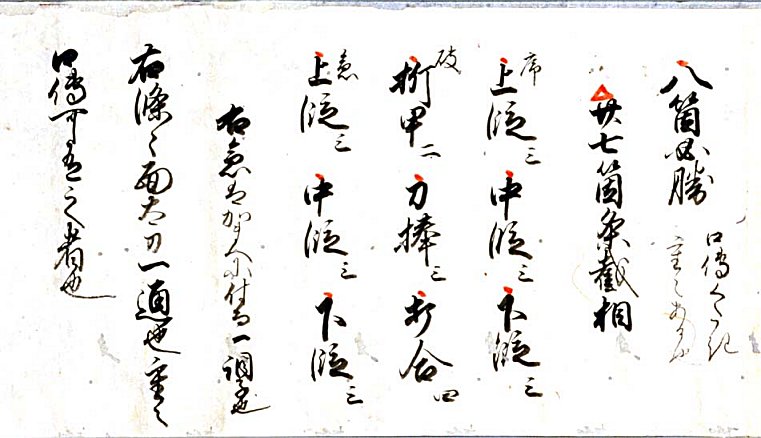 八箇必勝
口傳
重々
廿七箇条截相
序
上段三 中段三 下段三
破
折甲二 刀捧三 打合四
急
上段三 中段三 下段三
右急 付 一調子也
右條々面太刀一通也重々
口傳可有之者也